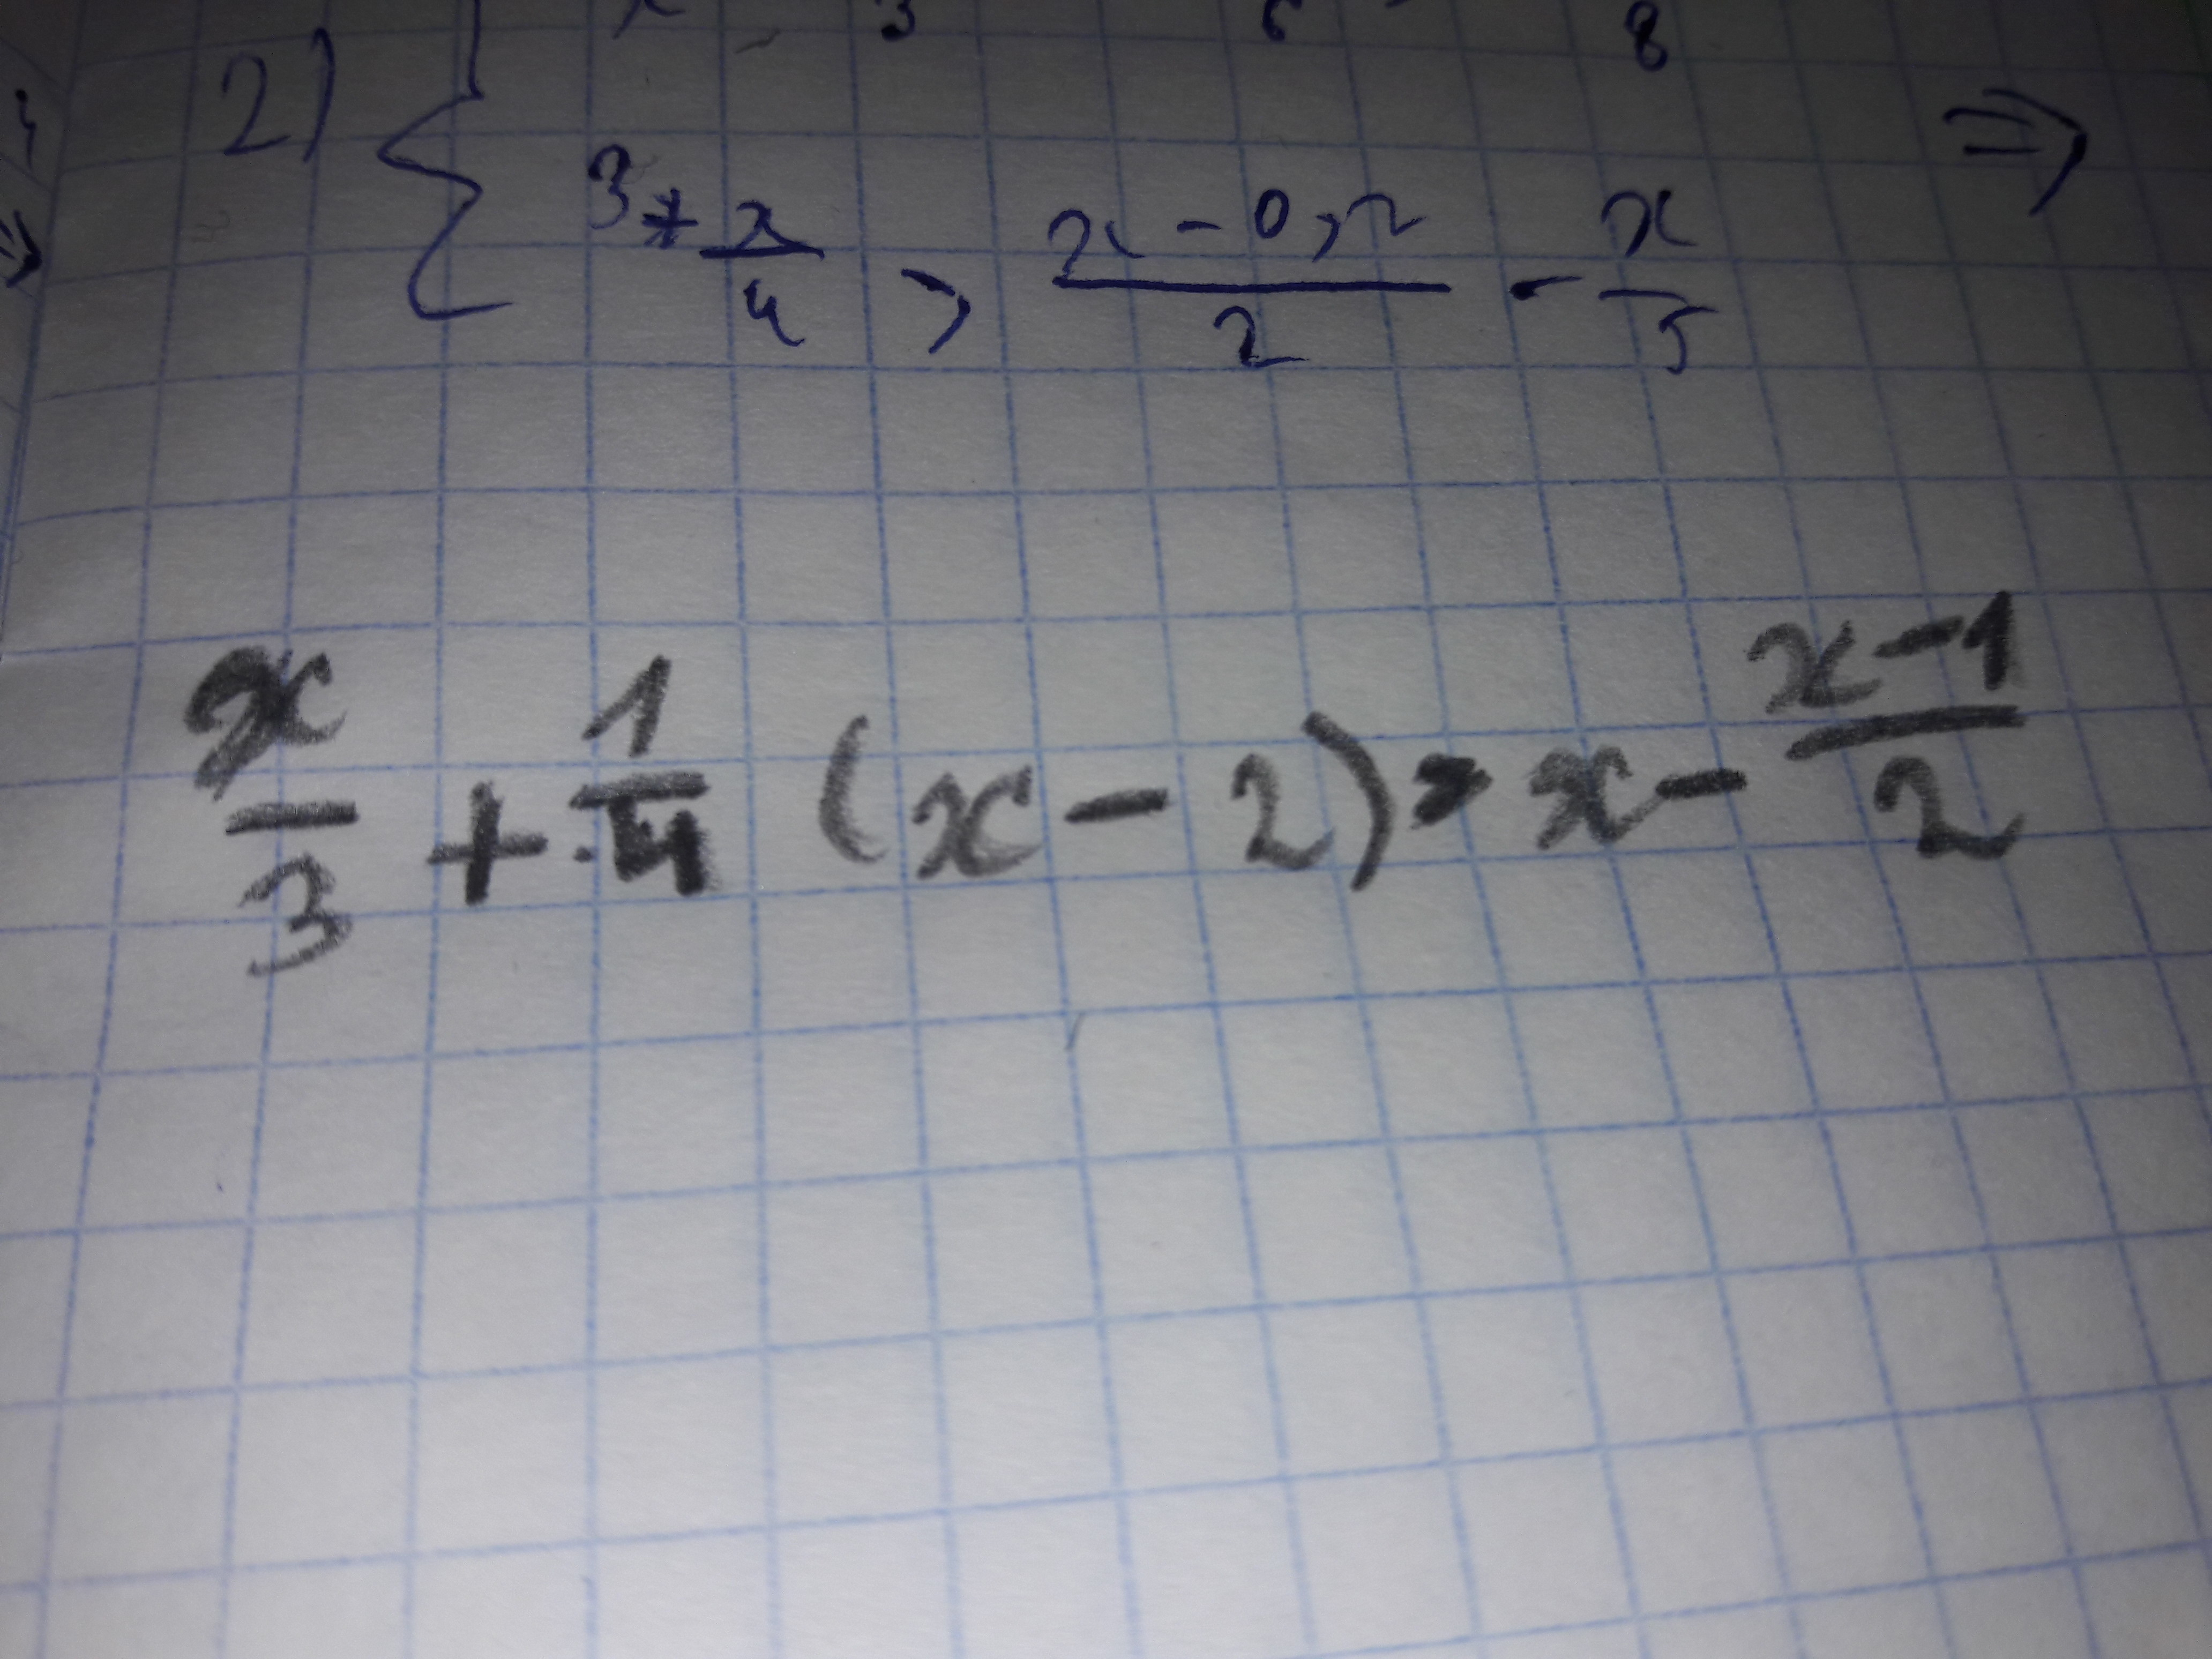 3 6 8
2) { ⇒
3 + x/4 > (x - 0,2)/2 - x/5
x/3 + 1/4 (x - 2) > x - (x-1)/2